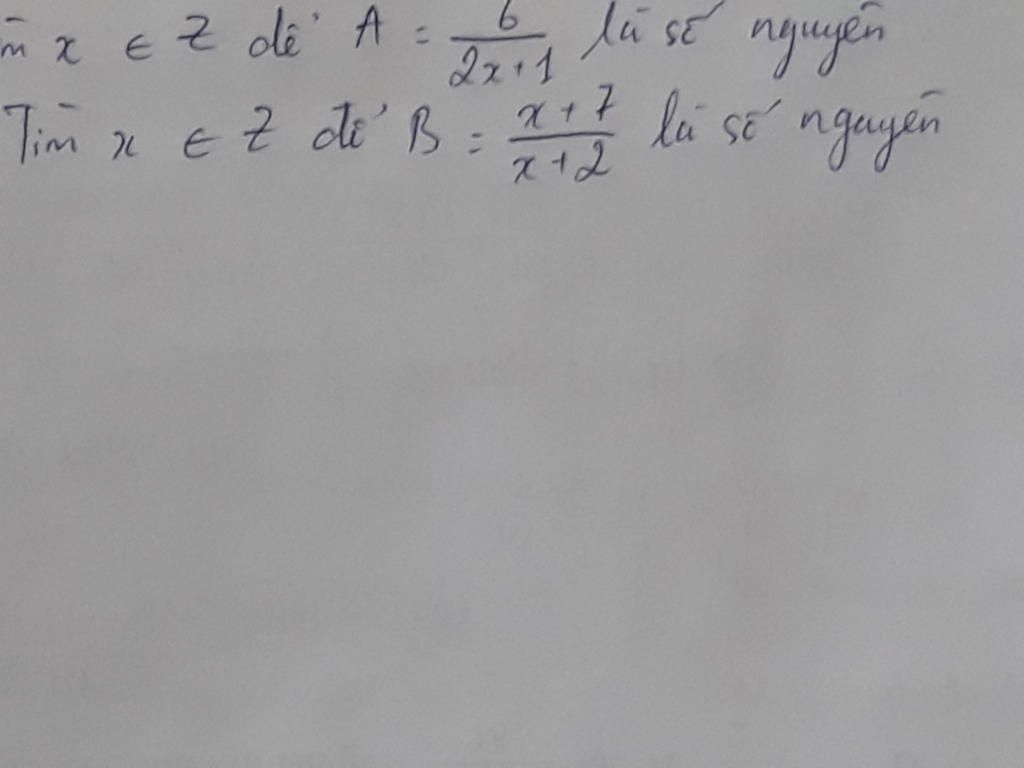 m x ∈ Z để A = 6/(2x+1) là số nguyên
Tìm x ∈ Z để B = (x+7)/(x+2) là số nguyên